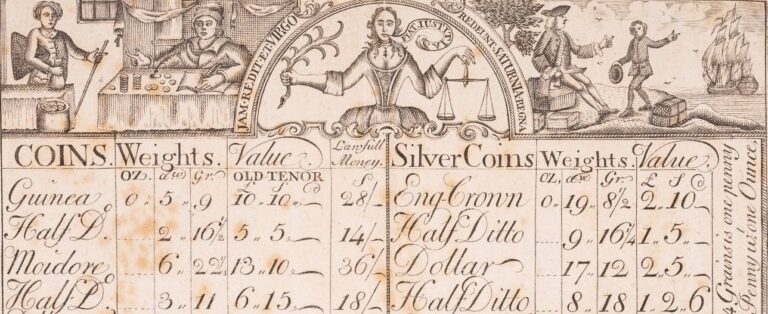 IAM·REDIT·ET·VIRGO
REDEUNT·SATURNIA·REGNA
COINS. Weights. Value. Lawfull Money. Silver Coins Weights. Value
OZ. dw. Gr. OLD TENOR £ S d OZ. dw. Gr. £ S d
Guinea 0 „ 5 „ 9 10 „ 10 „ — 28/— Eng. Crown 0 „ 19 „ 8½ 2 „ 10 —
Half Do .... 2 „ 16½ 5 „ 5 „ — 14/— Half Ditto .... 9 „ 16¼ 1 „ 5 „ —
Moidore .... 6 „ 22½ 13 „ 10 „ — 36/— Dollar .... 17 „ 12 2 „ 5 „ —
Half Do .... 3 „ 11 6 „ 15 „ — 18/— Half Ditto .... 8 „ 18 1 „ 2 „ 6
4 Grains is one penny
Penny wt. one Ounce.